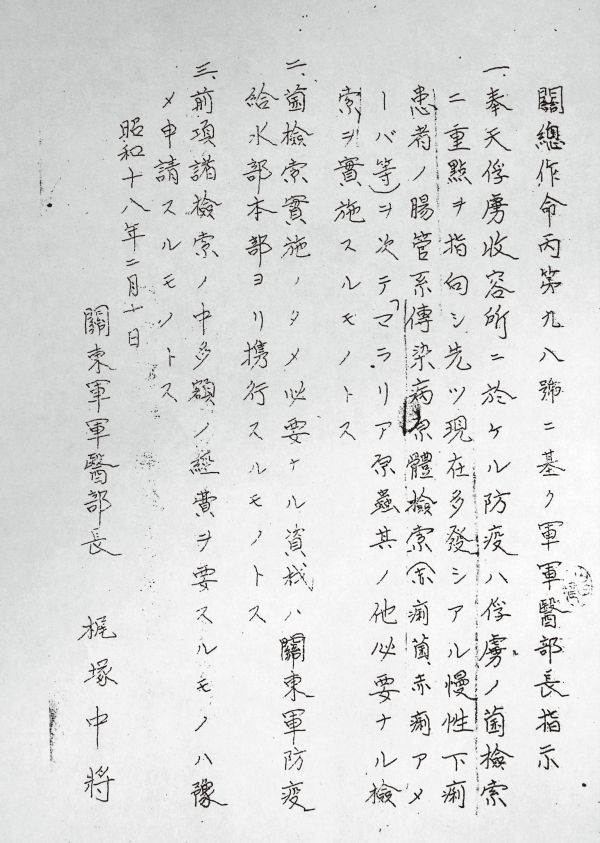 關總作命丙第九八號ニ基ク軍軍醫部長指示
一、奉天俘虜收容所ニ於ケル防疫ハ俘虜ノ菌檢索
ニ重點ヲ指向シ先ツ現在多發シアル慢性下痢
患者ノ腸管系傳染病原體檢索(含痢菌赤痢アメ
ーバ等)ヲ次テ「マラリア原蟲其ノ他必要ナル檢
索ヲ實施スルモノトス
二、菌檢索實施ノタメ必要ナル資材ハ關東軍防疫
給水部本部ヨリ携行スルモノトス
三、前項諸檢索ノ中多額ノ經費ヲ要スルモノハ豫
メ申請スルモノトス
昭和十八年二月十日
關東軍軍醫部長 梶塚中將